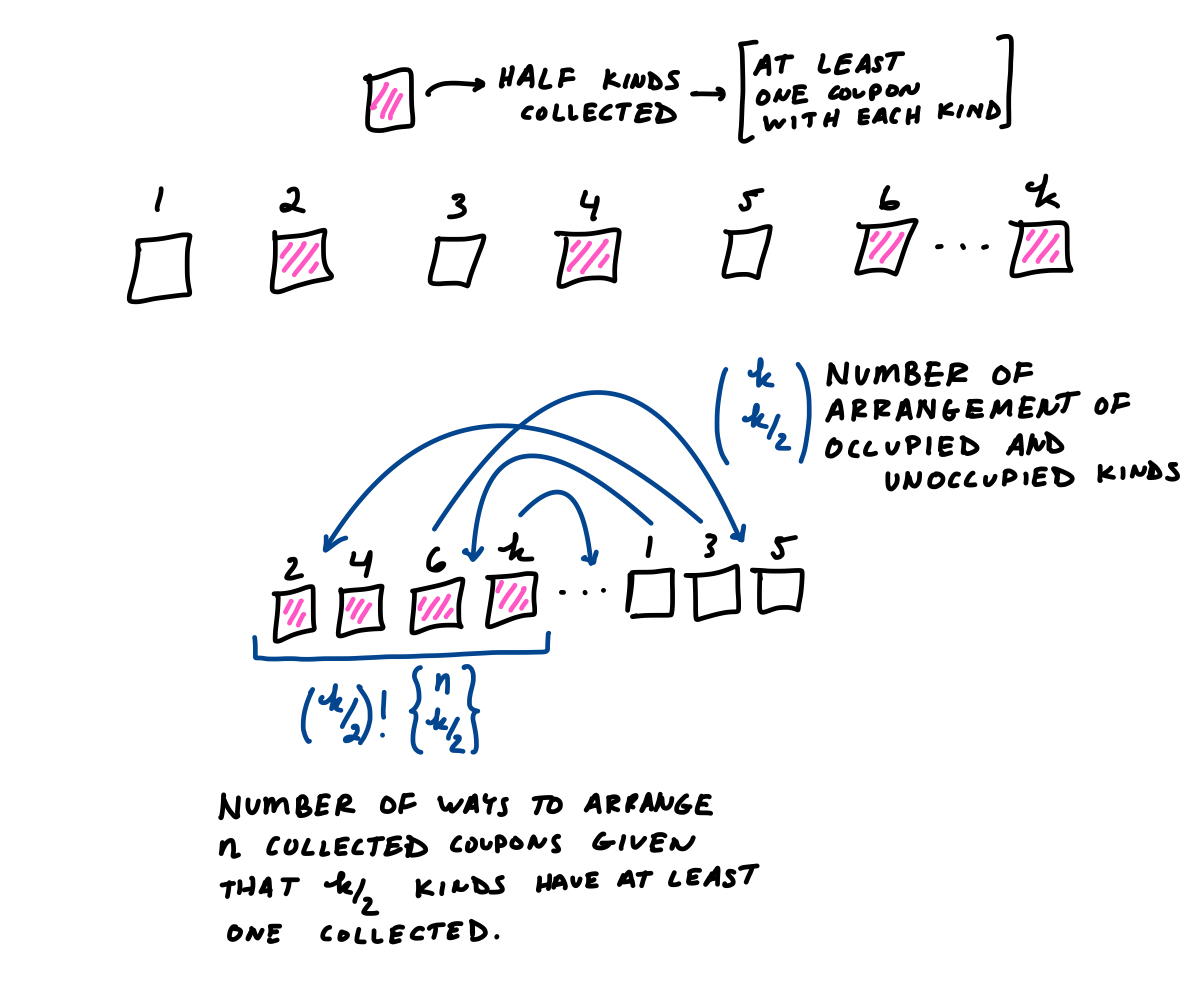 HALF KINDS
COLLECTED
AT LEAST
ONE COUPON
WITH EACH KIND
1 2 3 4 5 6 ... k
(k
k/2)
NUMBER OF
ARRANGEMENT OF
OCCUPIED AND
UNOCCUPIED KINDS
2 4 6 k ... 1 3 5
(k/2)! {n
k/2}
NUMBER OF WAYS TO ARRANGE
n COLLECTED COUPONS GIVEN
THAT k/2 KINDS HAVE AT LEAST
ONE COLLECTED.